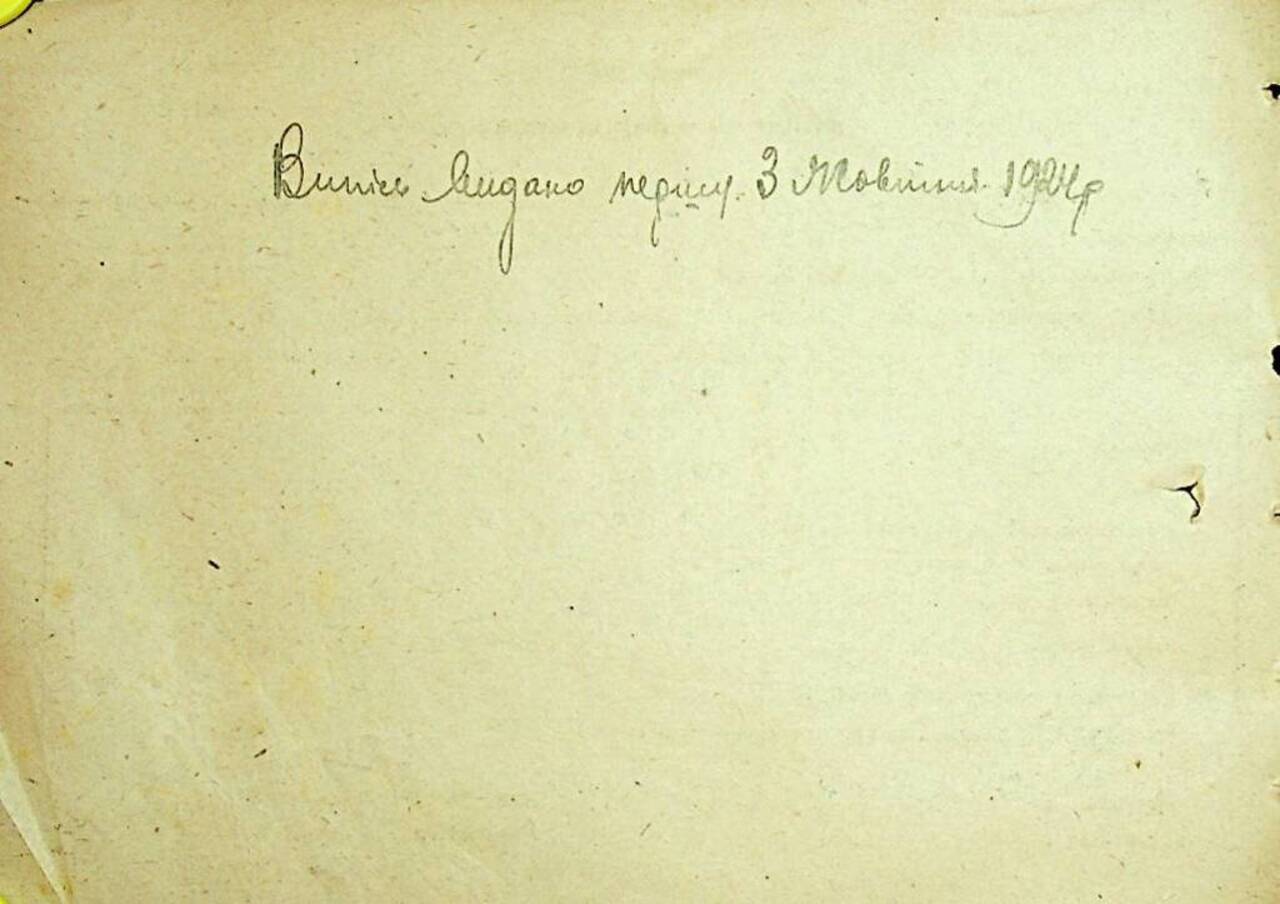 Випись видано першу 3 Жовтня 1924 р